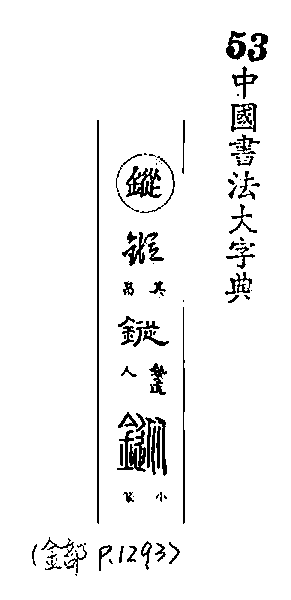 53
中國書法大字典
鏦
鏦
其昌
鏦
人
鏦
小篆
(金部 P.1293)